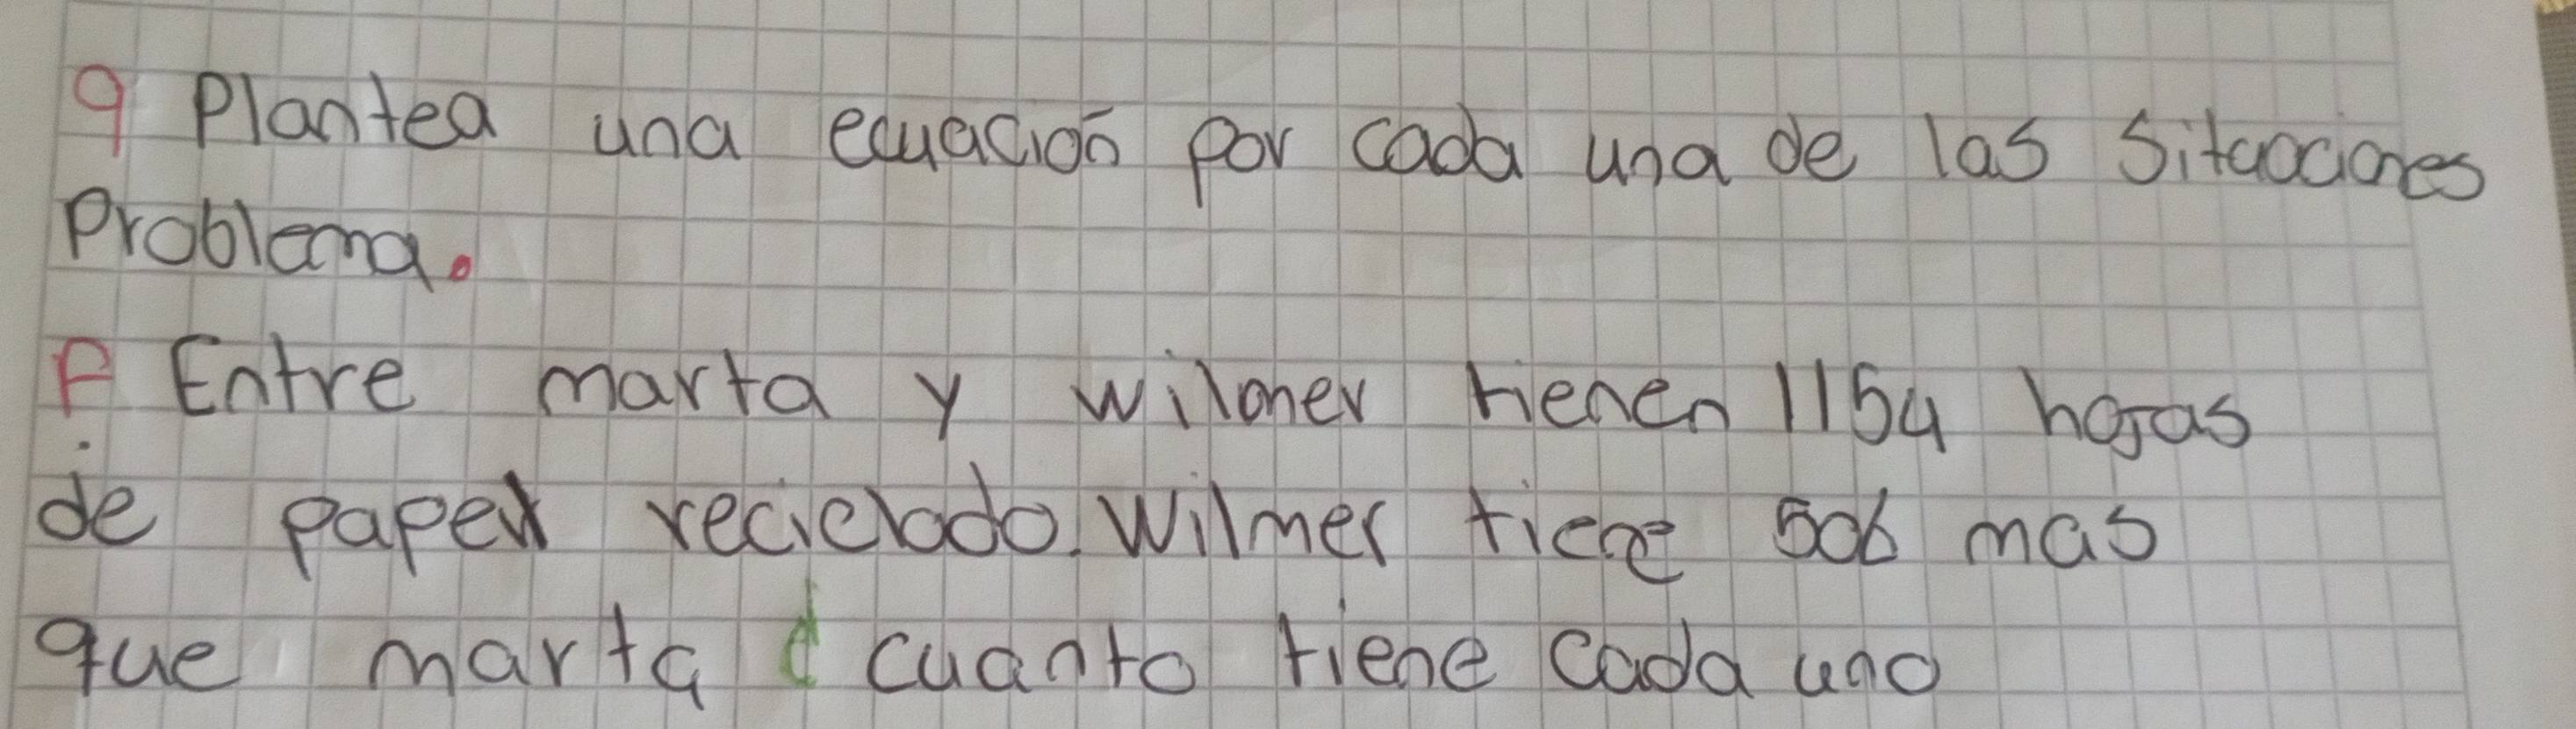 9 Plantea una ecuación por cada una de las situaciones
Problema.
P Entre marta y wilmer tienen 1154 hojas
de papel reciclado. Wilmer tiene 506 mas
que marta ¿ cuanto tiene cada uno